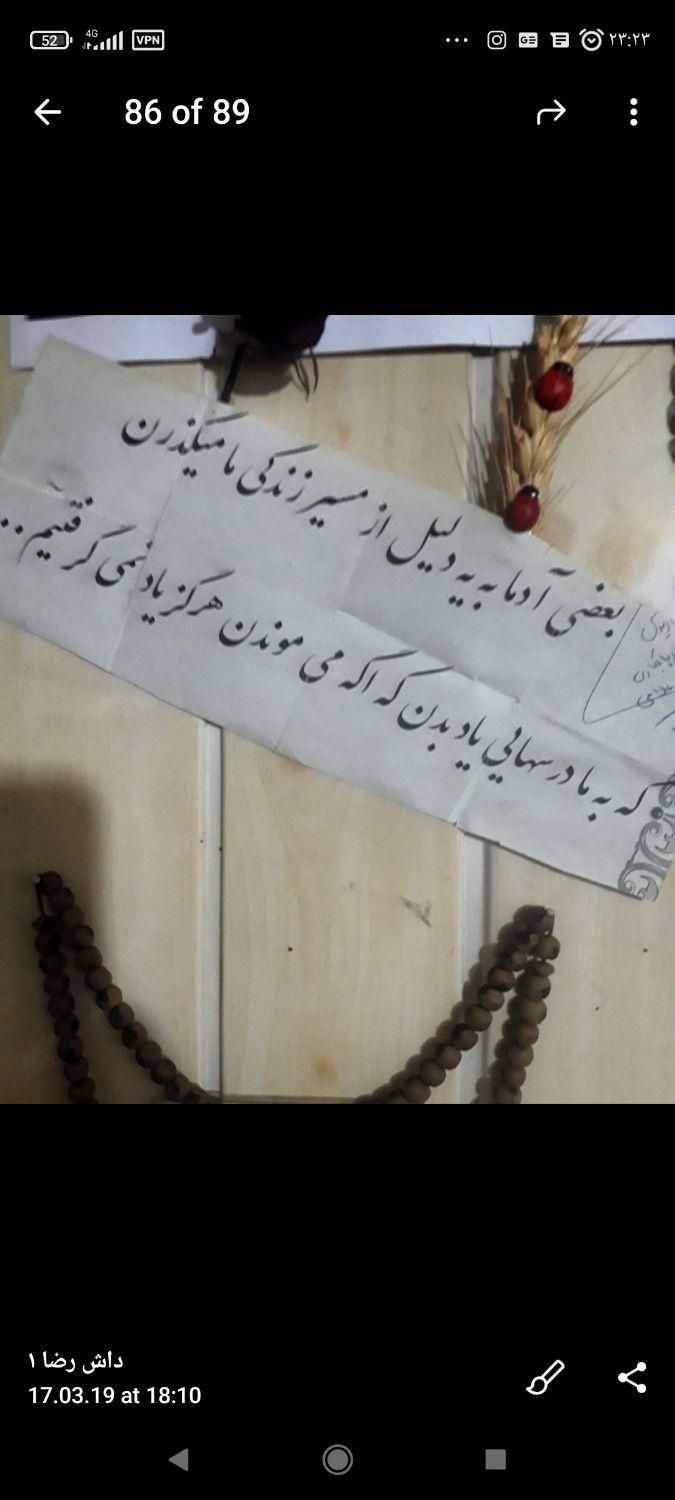 52 4G VPN ... GE ۲۳:۲۳
86 of 89
بعضی آدما به یه دلیل از مسیر زندگی ما میگذرن
که به ما درسهایی یاد بدن که اگه می موندن هرگز یاد نمی گرفتیم...
داش رضا ۱
17.03.19 at 18:10